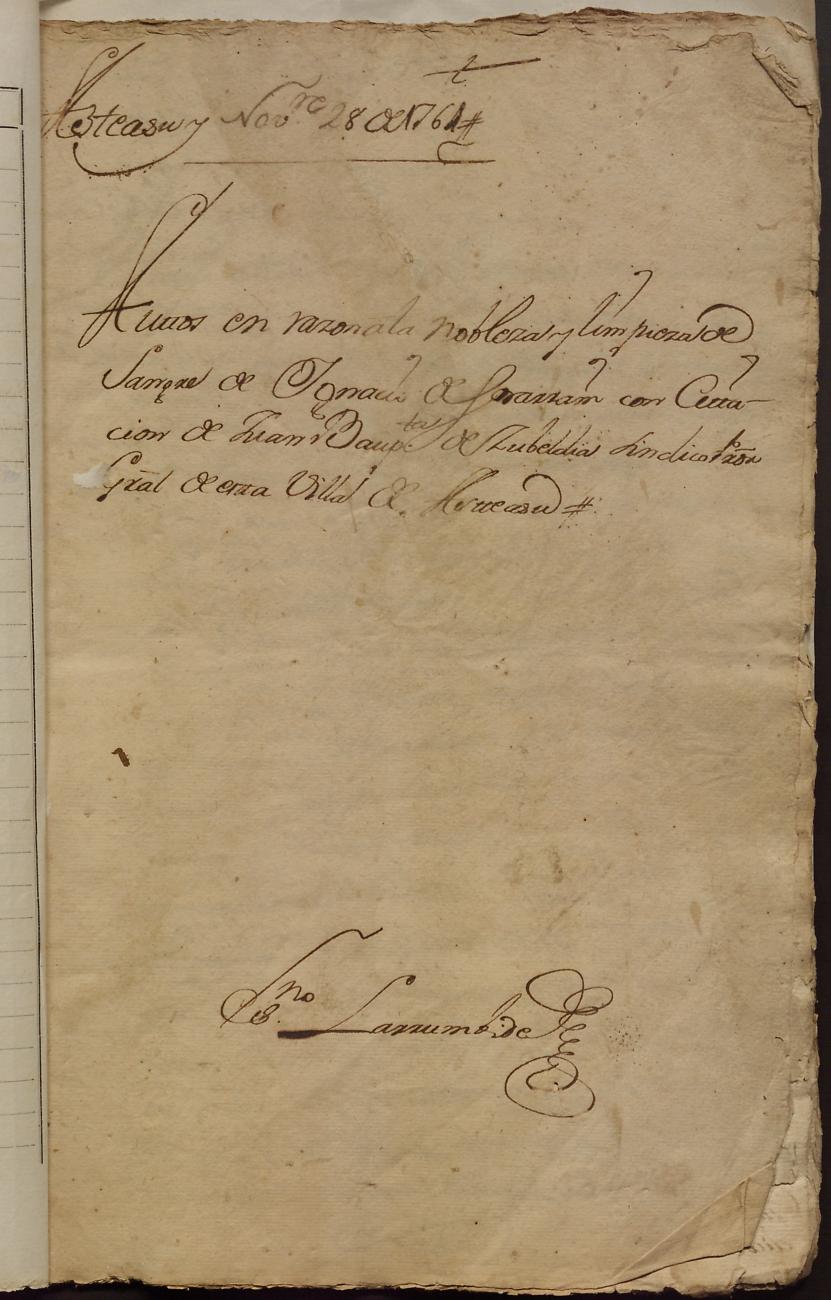 Asteasu y Nov.re 28 de 1761
Auttos en razon a la nobleza y limpieza de
Sangre de Ignacio de con Citta-
cion de Juan Baup.ta de Zubeldia Sindico Pror
Gral de esta Villa de Asteasu
Ss.no Larrumbide